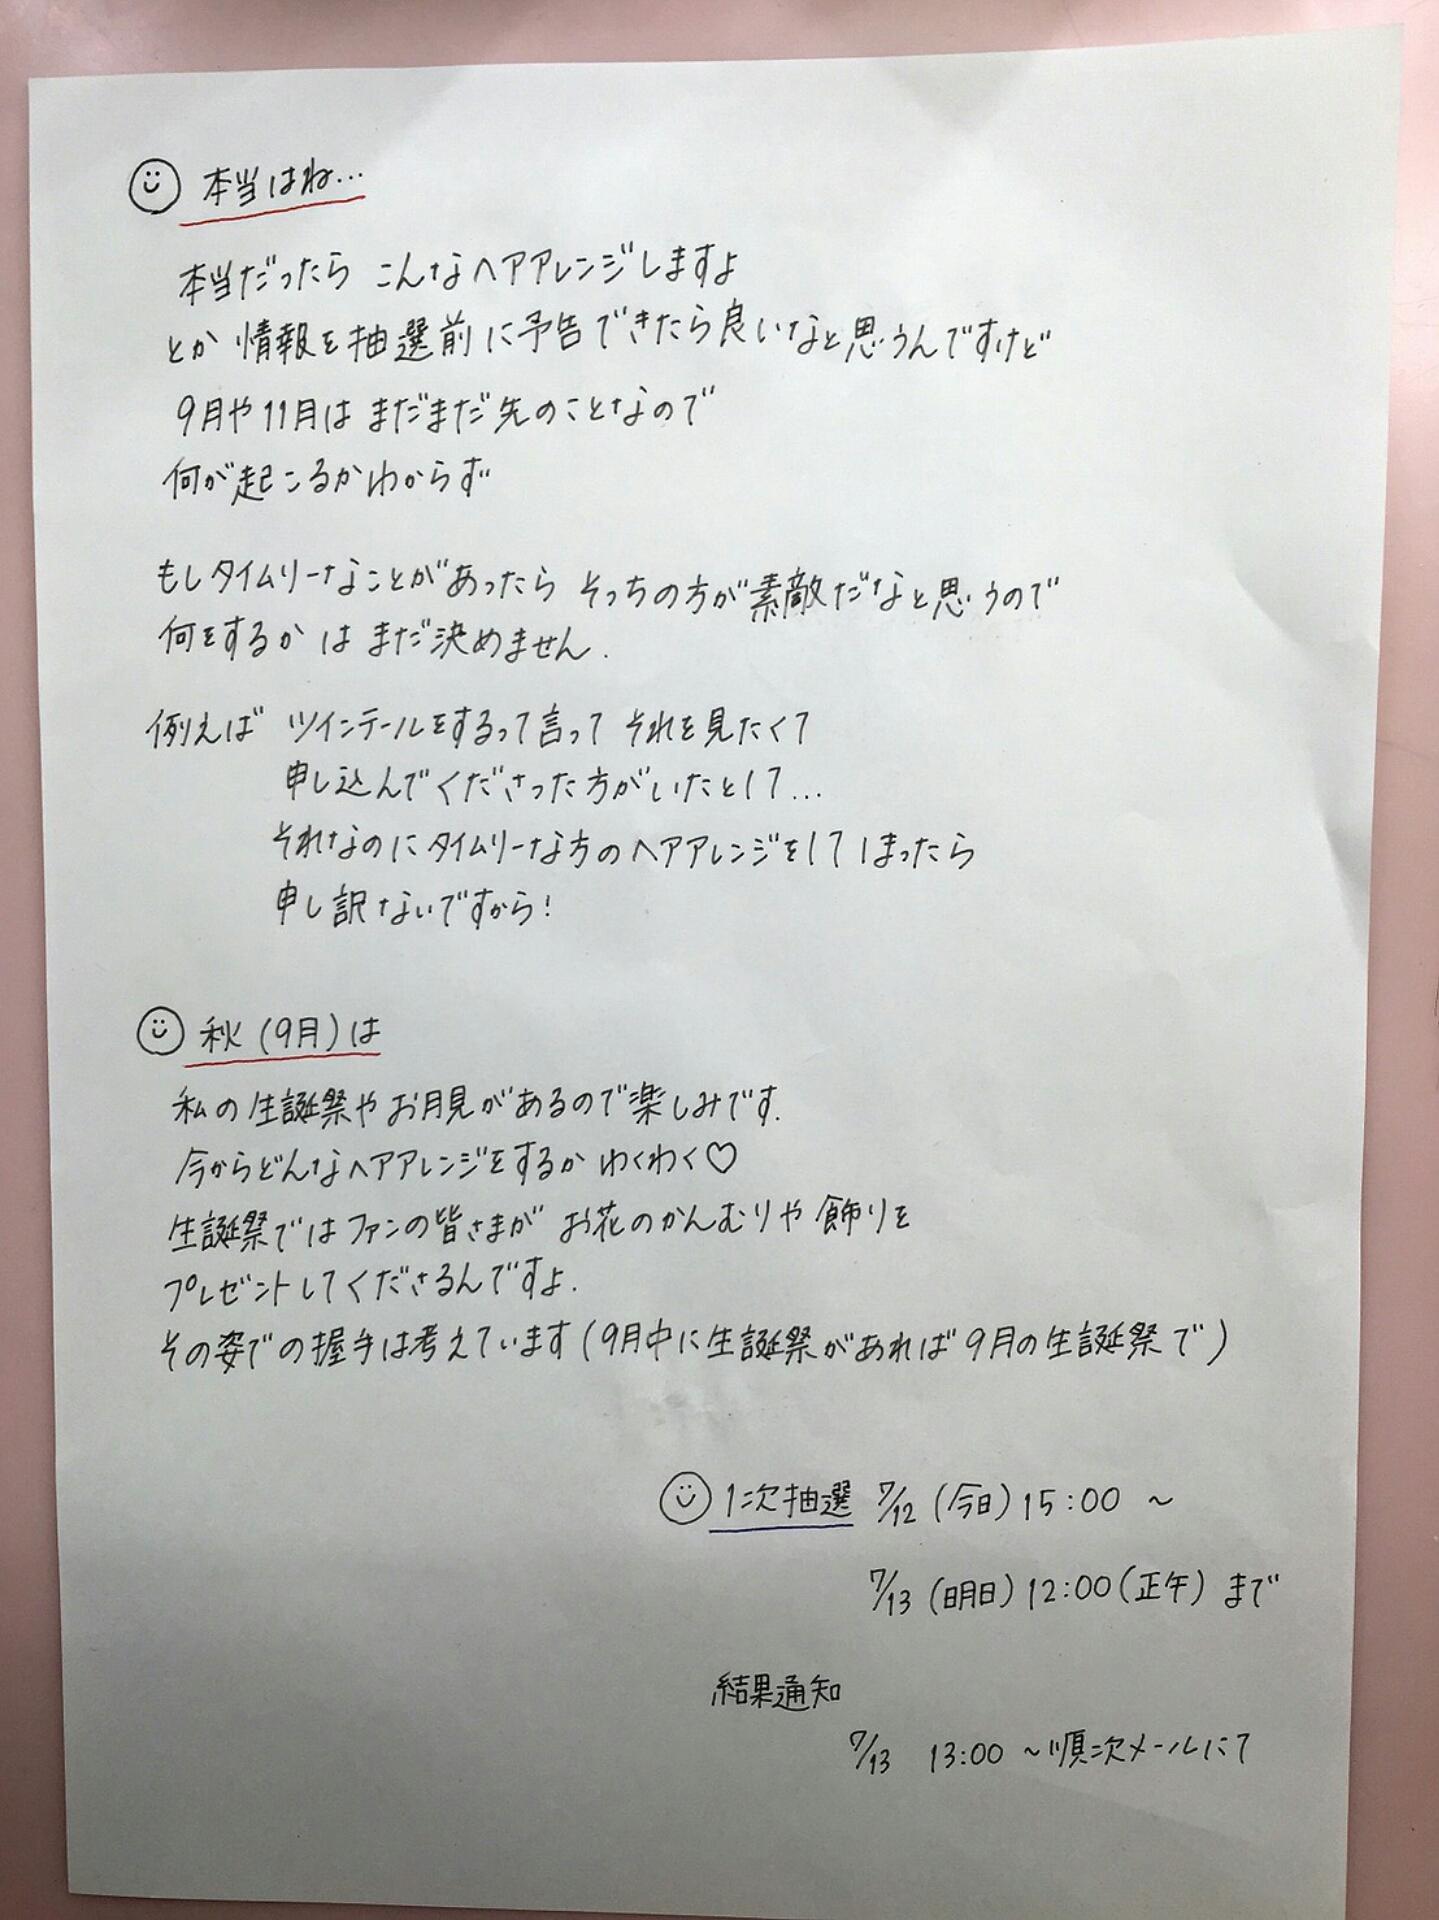 本当はね…
本当だったら こんなヘアアレンジしますよ
とか 情報を抽選前に予告できたら良いなと思うんですけど
9月や11月は まだまだ先のことなので
何が起こるかわからず
もしタイムリーなことがあったら そっちの方が素敵だなと思うので
何をするか は まだ決めません.
例えば ツインテールをするって言って それを見たくて
申し込んでくださった方がいたとして…
それなのにタイムリーな方のヘアアレンジをしてしまったら
申し訳ないですから!
秋(9月)は
私の生誕祭や お月見があるので楽しみです.
今からどんなヘアアレンジをするか わくわく♡
生誕祭ではファンの皆さまが お花のかんむりや 飾りを
プレゼントしてくださるんですよ.
その姿での握手は考えています(9月中に生誕祭があれば 9月の生誕祭で)
1次抽選 7/12 (今日) 15:00 ~
7/13 (明日) 12:00 (正午) まで
結果通知
7/13 13:00 ~順次メールにて